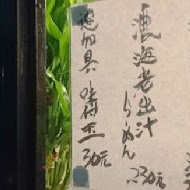 濃海老出汁
らーめん
230元
追加具 味付玉
30元